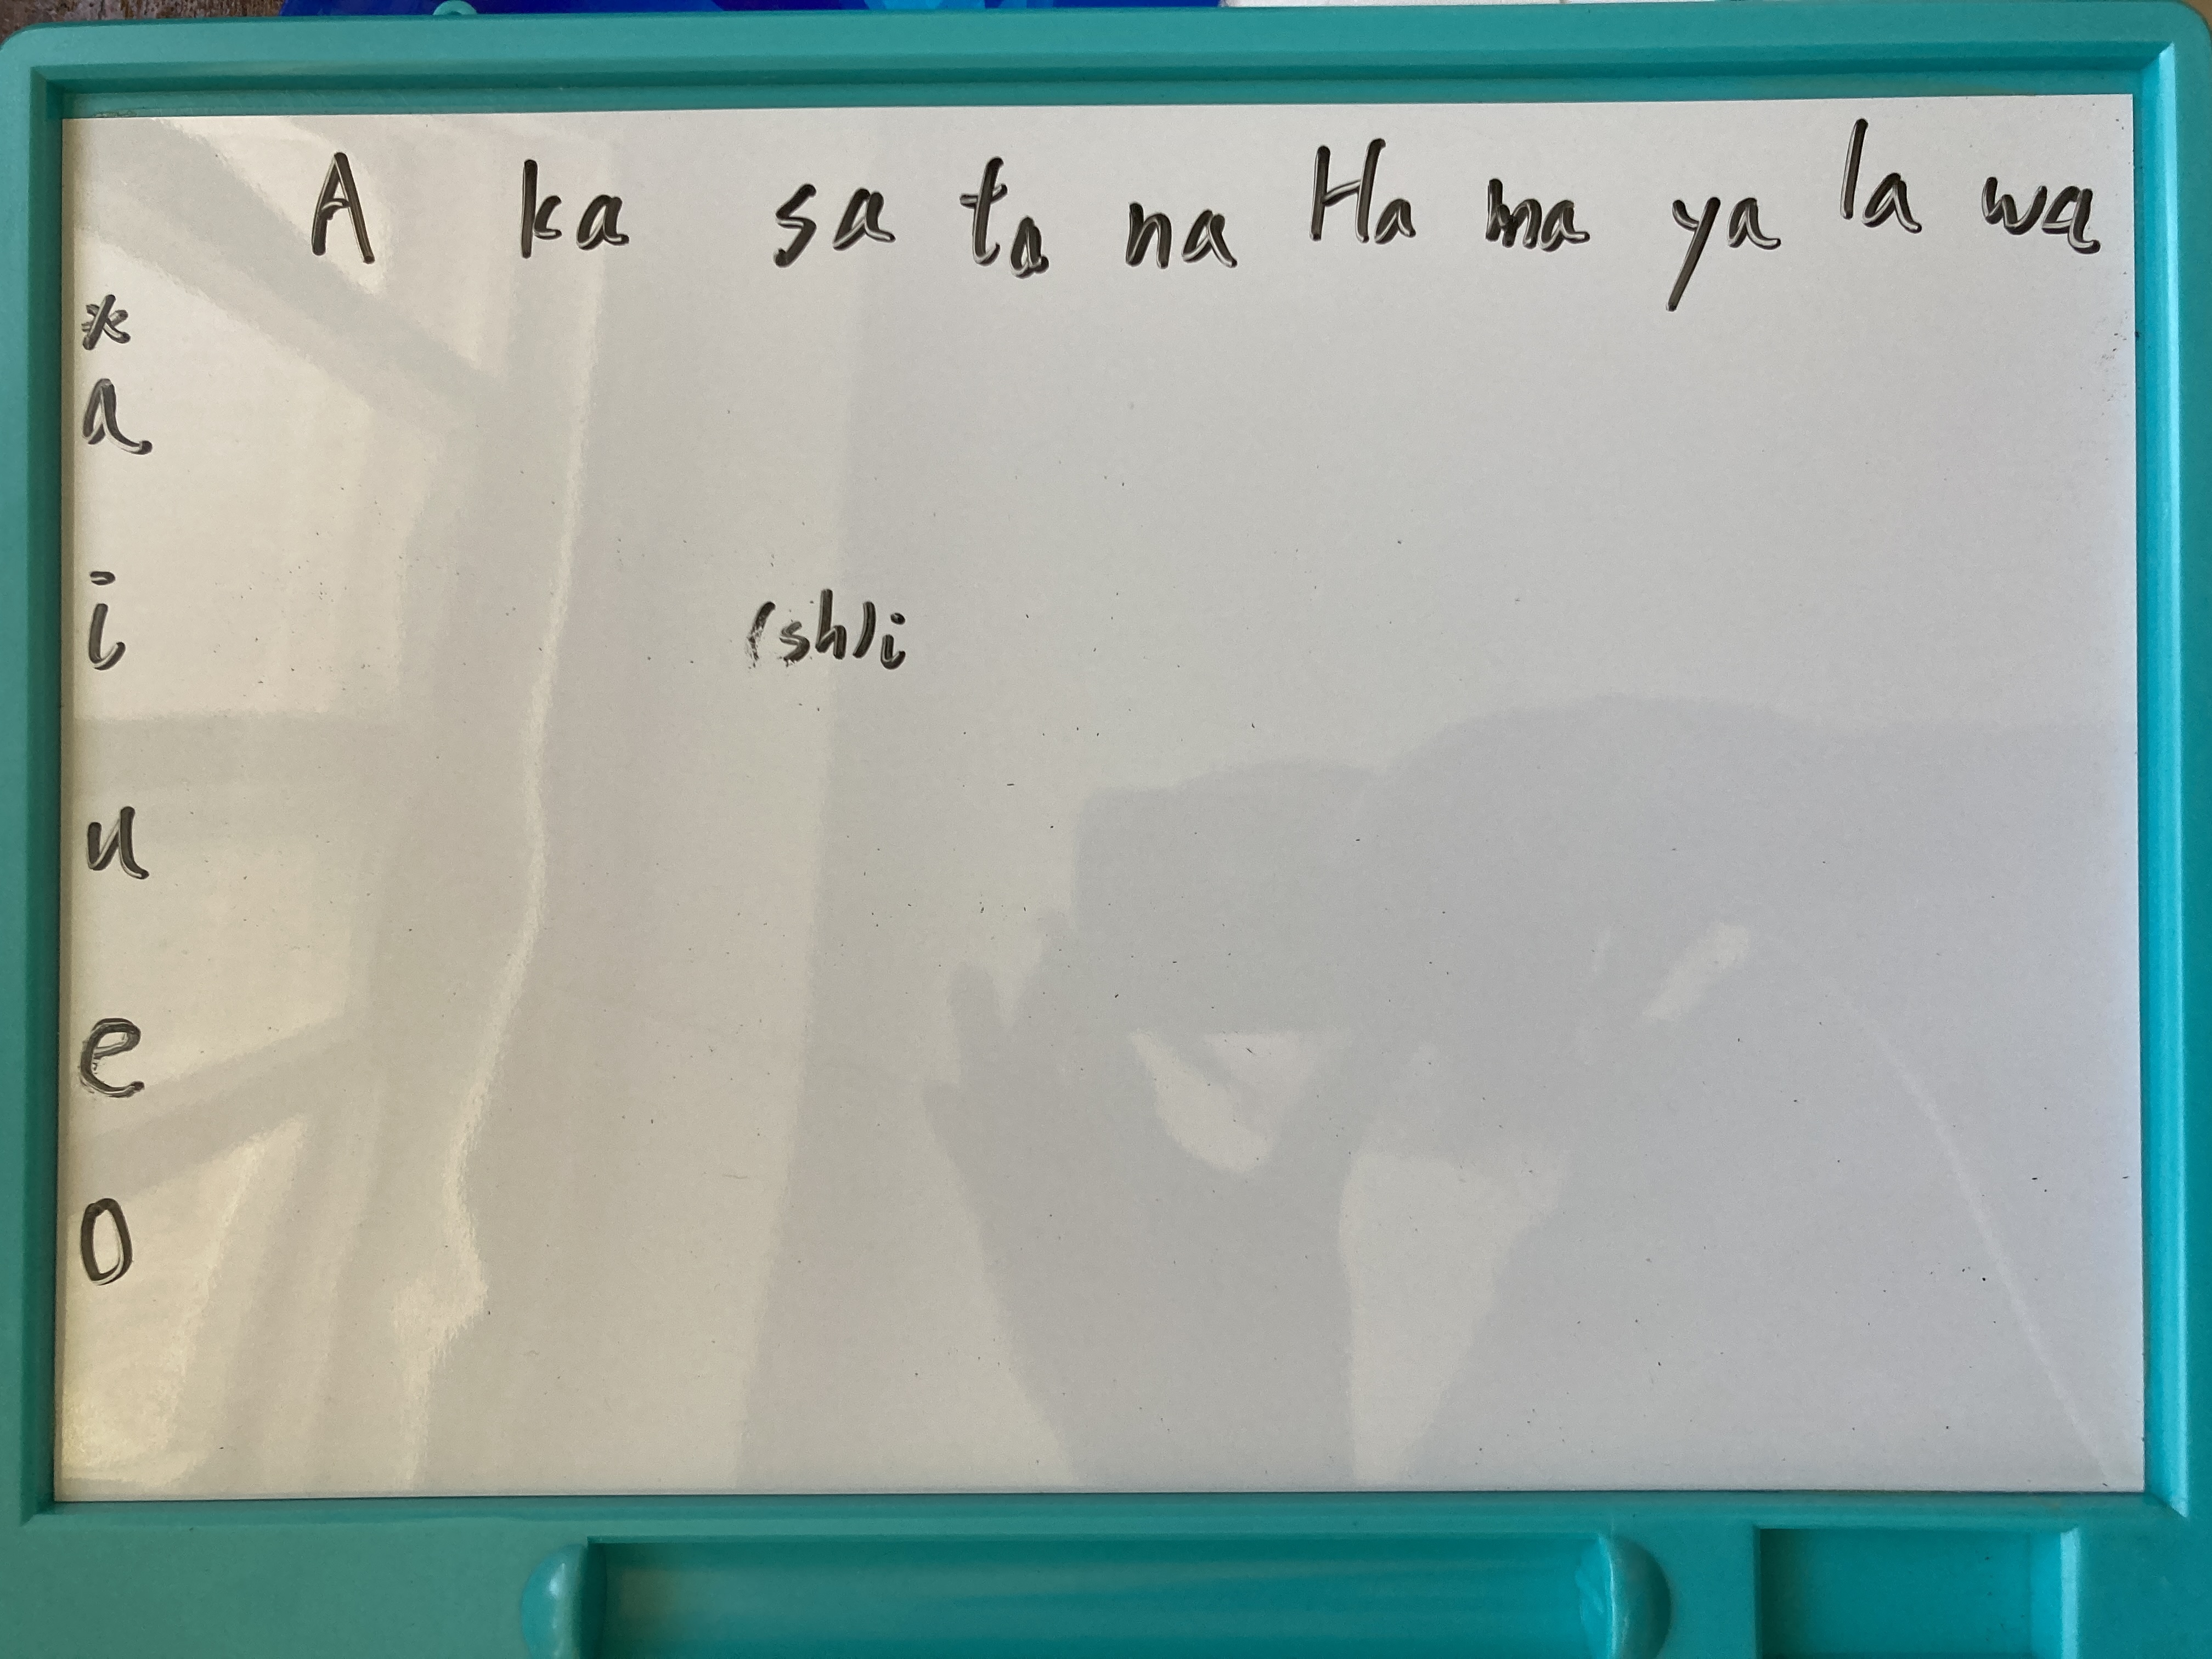 A ka sa ta na Ha ma ya la wa
*
a
i (sh)i
u
e
o